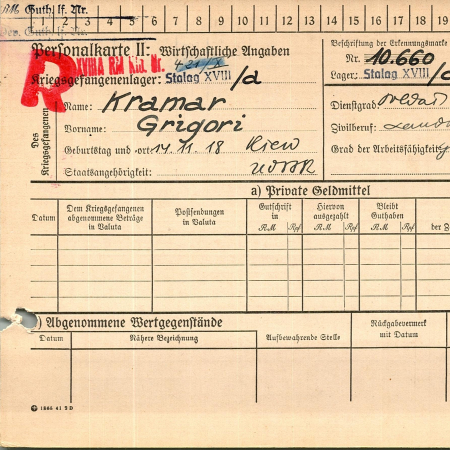 RM Guth. lf. Nr.
1 2 3 4 5 6 7 8 9 10 11 12 13 14 15 16 17 18 19
Dev. Guth. lf. Nr.
Personalkarte II: Wirtschaftliche Angaben
Beschriftung der Erkennungsmarke
R XVIIIA RM Kto. Nr.
Nr. 10.660
Kriegsgefangenenlager: Stalag XVIII /a
Lager: Stalag XVIII/a
Des Kriegsgefangenen
Name: Kramar
Dienstgrad:
Vorname: Grigori
Zivilberuf:
Geburtstag und -ort: 14.11.18 Kiew
Grad der Arbeitsfähigkeit:
Staatsangehörigkeit: UdSSR
a) Private Geldmittel
Datum
Dem Kriegsgefangenen abgenommene Beträge in Valuta
Postsendungen in Valuta
Gutschrift in
RM Rpf
Hiervon ausgezahlt
RM Rpf
Bleibt Guthaben
RM Rpf
der
b) Abgenommene Wertgegenstände
Datum
Nähere Bezeichnung
Aufbewahrende Stelle
Rückgabevermerk mit Datum
1865 41 2 D